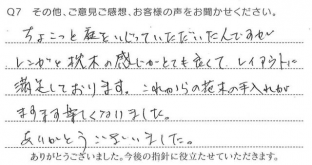 Q7 その他、ご意見ご感想、お客様の声をお聞かせください。
ちょこっと庭をいじっていただいたんですが
レンガと枕木の感じがとても良くて、レイアウトに
満足しております。これからの花木の手入れが
ますます楽しくなりました。
ありがとうございました。
ありがとうございました。今後の指針に役立たせていただきます。